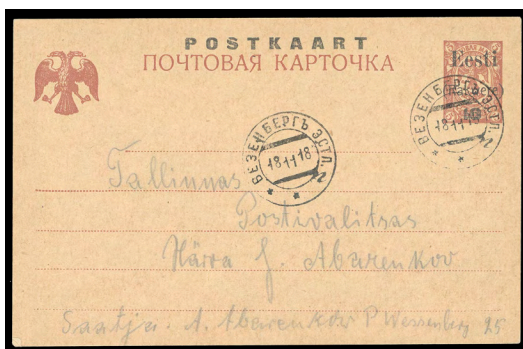 POSTKAART
ПОЧТОВАЯ КАРТОЧКА
Eesti
ВЕЗЕНБЕРГЪ ЭСТЛ.
18 11 18
ВЕЗЕНБЕРГЪ ЭСТЛ.
18 11 18
Tallinnas
Postivalitsas
Härra J. Abarenkov
Saatja. A. Abarenkov P Wessenberg 25